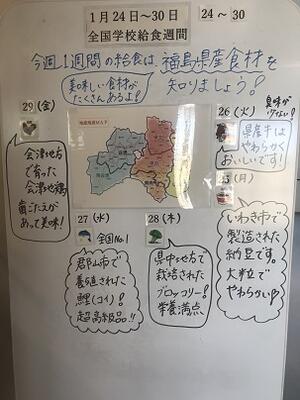 1月24日～30日
全国学校給食週間
24～30
今週1週間の給食は、福島県産食材を
知りましょう!
美味しい食材が
たくさんあるよ!
29(金)
会津地方
で育った
会津地鶏
歯ごたえが
あって美味!
26(火)
臭味が
少ない!
県産牛は
やわらかく
おいしいです!
25(月)
いわき市で
製造された
納豆です。
大粒で
やわらかい
27(水)
全国No.1
郡山市で
養殖された
鯉(コイ)!
超高級品!!
28(木)
県中地方で
栽培された
ブロッコリー!
栄養満点